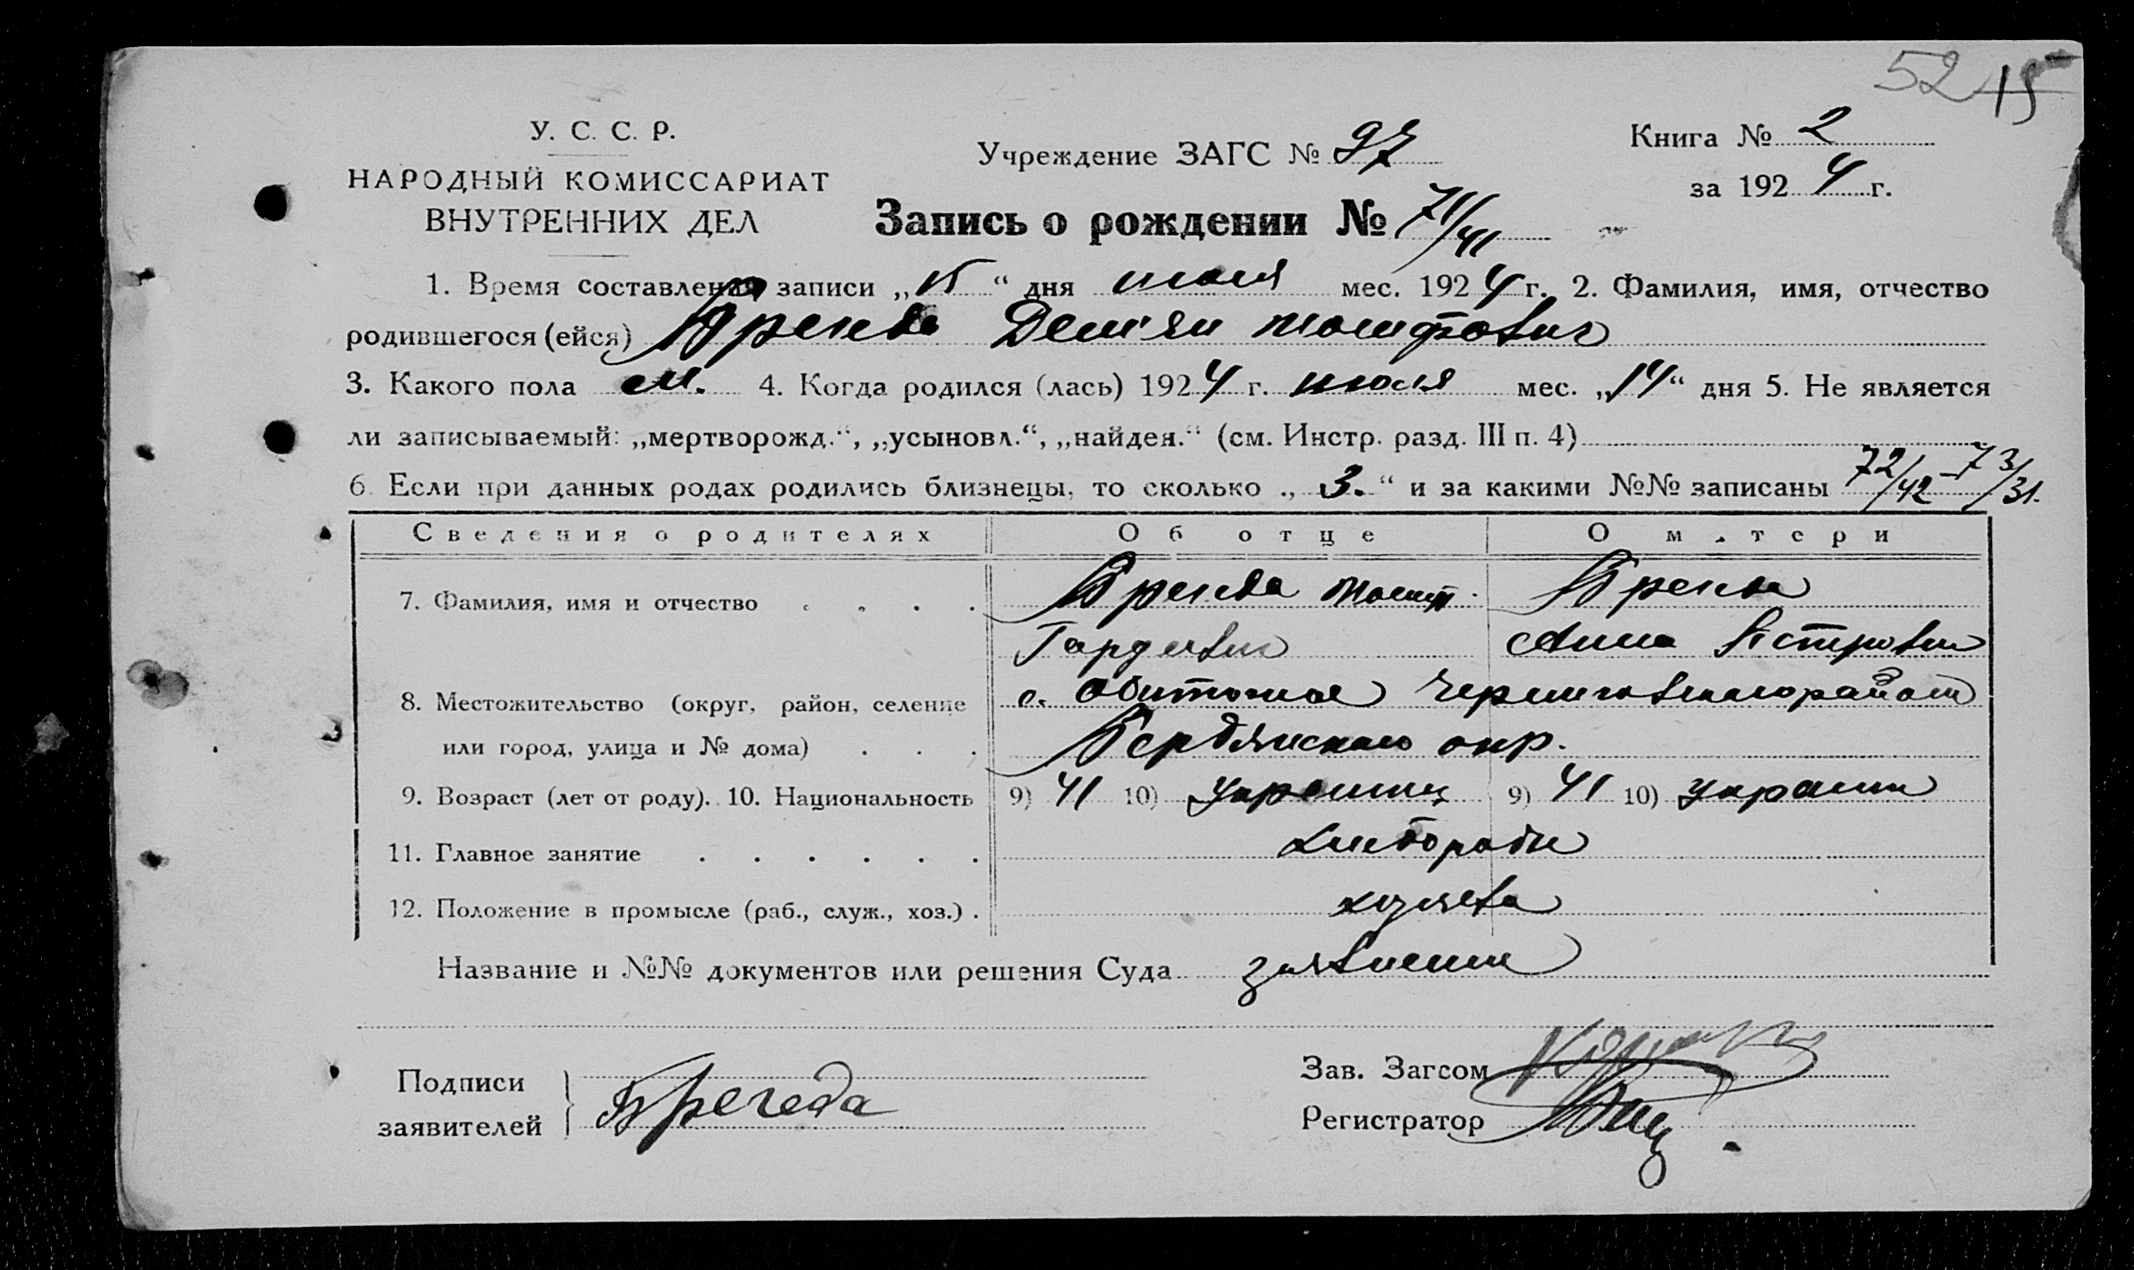 52 15
У. С. С. Р.
НАРОДНЫЙ КОМИССАРИАТ
ВНУТРЕННИХ ДЕЛ
Учреждение ЗАГС № 97
Книга № 2
за 1924 г.
Запись о рождении № 71/41
1. Время составления записи „15“ дня июля мес. 1924 г. 2. Фамилия, имя, отчество
родившегося (ейся) Демьян
3. Какого пола м. 4. Когда родился (лась) 1924 г. июля мес. „14“ дня 5. Не является
ли записываемый: „мертворожд.“, „усыновл.“, „найден.“ (см. Инстр. разд. III п. 4)
6. Если при данных родах родились близнецы, то сколько „3.“ и за какими №№ записаны 72/42 - 73/31.
Сведения о родителях Об отце О матери
7. Фамилия, имя и отчество
Анна Петровна
8. Местожительство (округ, район, селение с. Обиточное Черниговского района
или город, улица и № дома) Бердянского окр.
9. Возраст (лет от роду). 10. Национальность 9) 41 10) украинец 9) 41 10) украин
11. Главное занятие хлебороби
12. Положение в промысле (раб., служ., хоз.) хозяева
Название и №№ документов или решения Суда заявление
Подписи
заявителей
Зав. Загсом
Регистратор